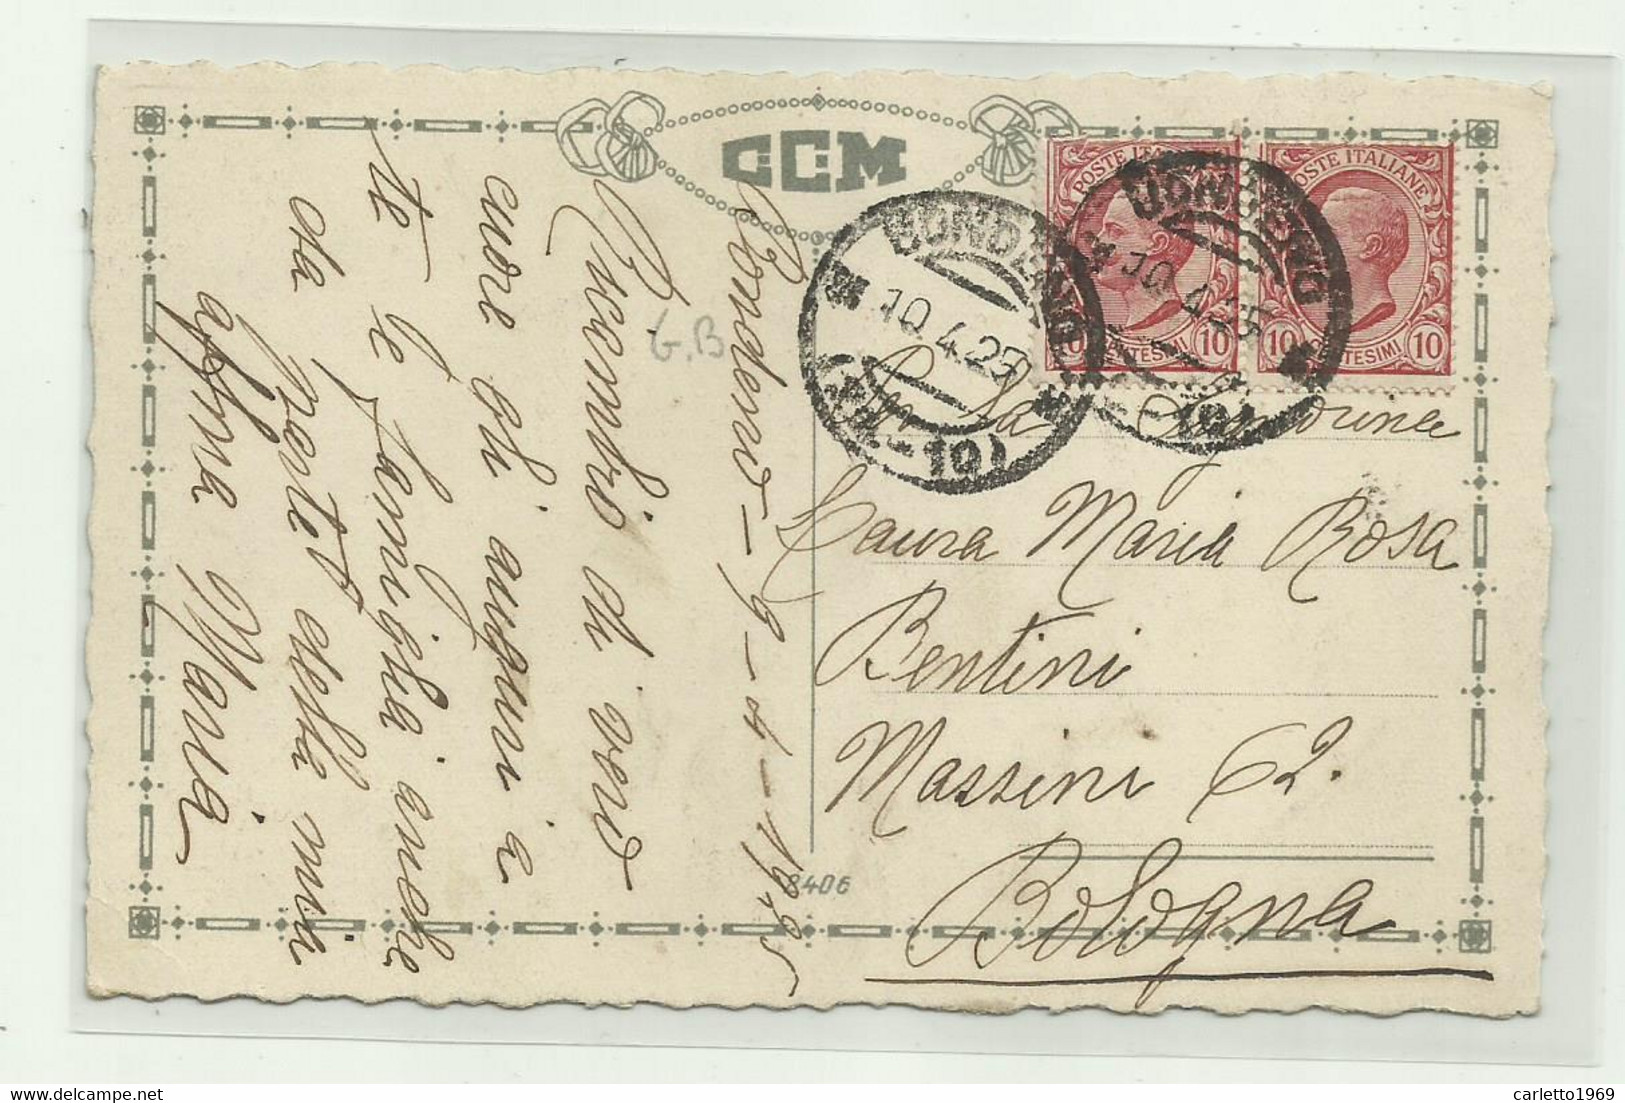 C.C.M
POSTE ITALIANE
10 CENTESIMI 10
POSTE ITALIANE
10 CENTESIMI 10
BONDENO
10.4.25
BONDENO
10.4.25
Bondeno - 9 - 4 - 1925
Ricambio di vero
cuore gli auguri a
te e famiglia anche
da parte della mia
affma Maria
G.B
Signorina
Laura Maria Rosa
Bentini
Massini 62.
Bologna
8406
delcampe.net
carletto1969